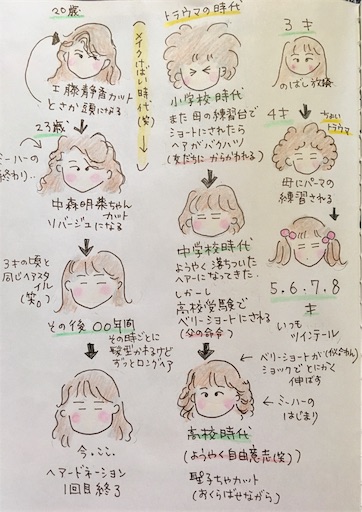 3才
のばし放題
4才
ちょい
トラウマ
母にパーマの
練習される
5.6.7.8
才
いつも
ツインテール
トラウマの時代
小学校時代
また母の練習台で
ショートにされたら
ヘアがバクハツ
(友だちに からかわれる)
中学校時代
ようやく落ちついた
ヘアーになってきた。
しかーし
高校受験で
ベリーショートにされる
(父の命令)
ベリーショートが(似合わん)
ショックでとにかく
伸ばす
ミーハーの
はじまり
高校時代
(ようやく自由意志(笑)
聖子ちゃカット
(おくらばせながら)
メイクけばい時代(笑)
20歳
工藤静香カット
とさか頭になる
23歳
ミーハーの
終わり..
中森明菜ちゃん
カット
ソバージュになる
3才の頃と
同じヘアスタ
イル
(笑。)
その後〇〇年間
その時ごとに
髪型かわるけど
ずっとロングヘア
今,ここ.
ヘアードネーション
1回目終了